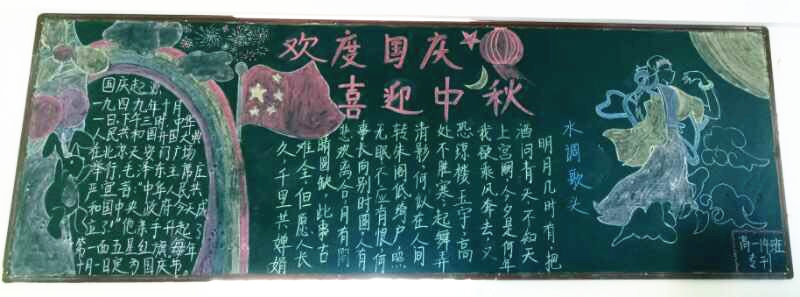 欢度国庆
喜迎中秋
国庆起源
一九四九年十月
一日,下午三时,中华
人民共和国开国大典
在北京天安门广场
举行,毛泽东主席庄
严宣告:"中华人民共
和国中央政府今天成
立了!"他亲手升起了
第一面五星红旗,每年
十月一日定为国庆节。
水调歌头
明月几时有,把
酒问青天,不知天
上宫阙,今夕是何年
我欲乘风去,又
恐琼楼玉宇,高
处不胜寒,起舞弄
清影,何似在人间
转朱阁,低绮户,照
无眠,不应有恨,何
事长向别时圆,人有
悲欢离合,月有阴
晴圆缺,此事古
难全,但愿人长
久,千里共婵娟
高一班
专刊